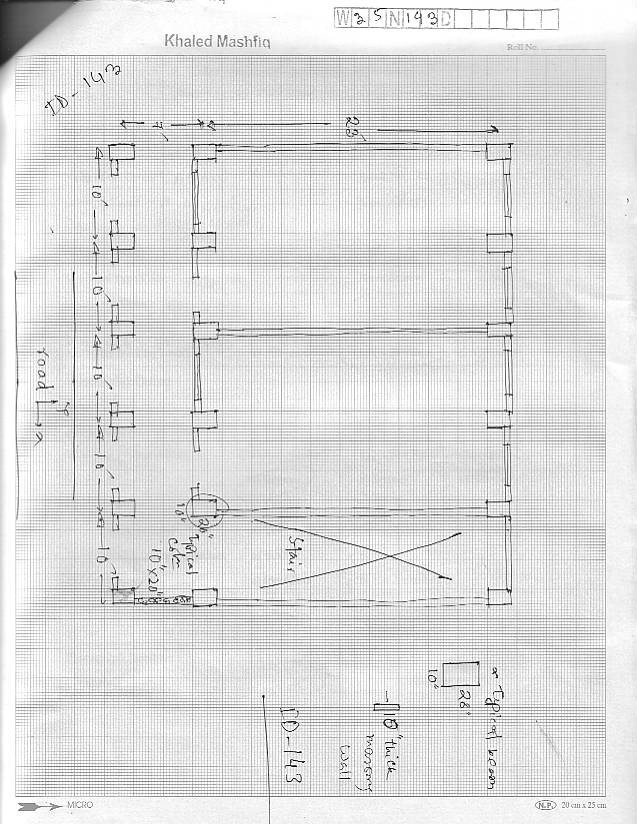 W35N143D
Khaled Mashfiq
Roll No.
ID-143
23'
7'
10'
10'
10'
10'
10'
road
y
x
20"
10"
Typical
10"x20"
Stair
Typical beam
10"
10" thick
masonry
wall
ID-143
MICRO
N.P. 20 cm x 25 cm